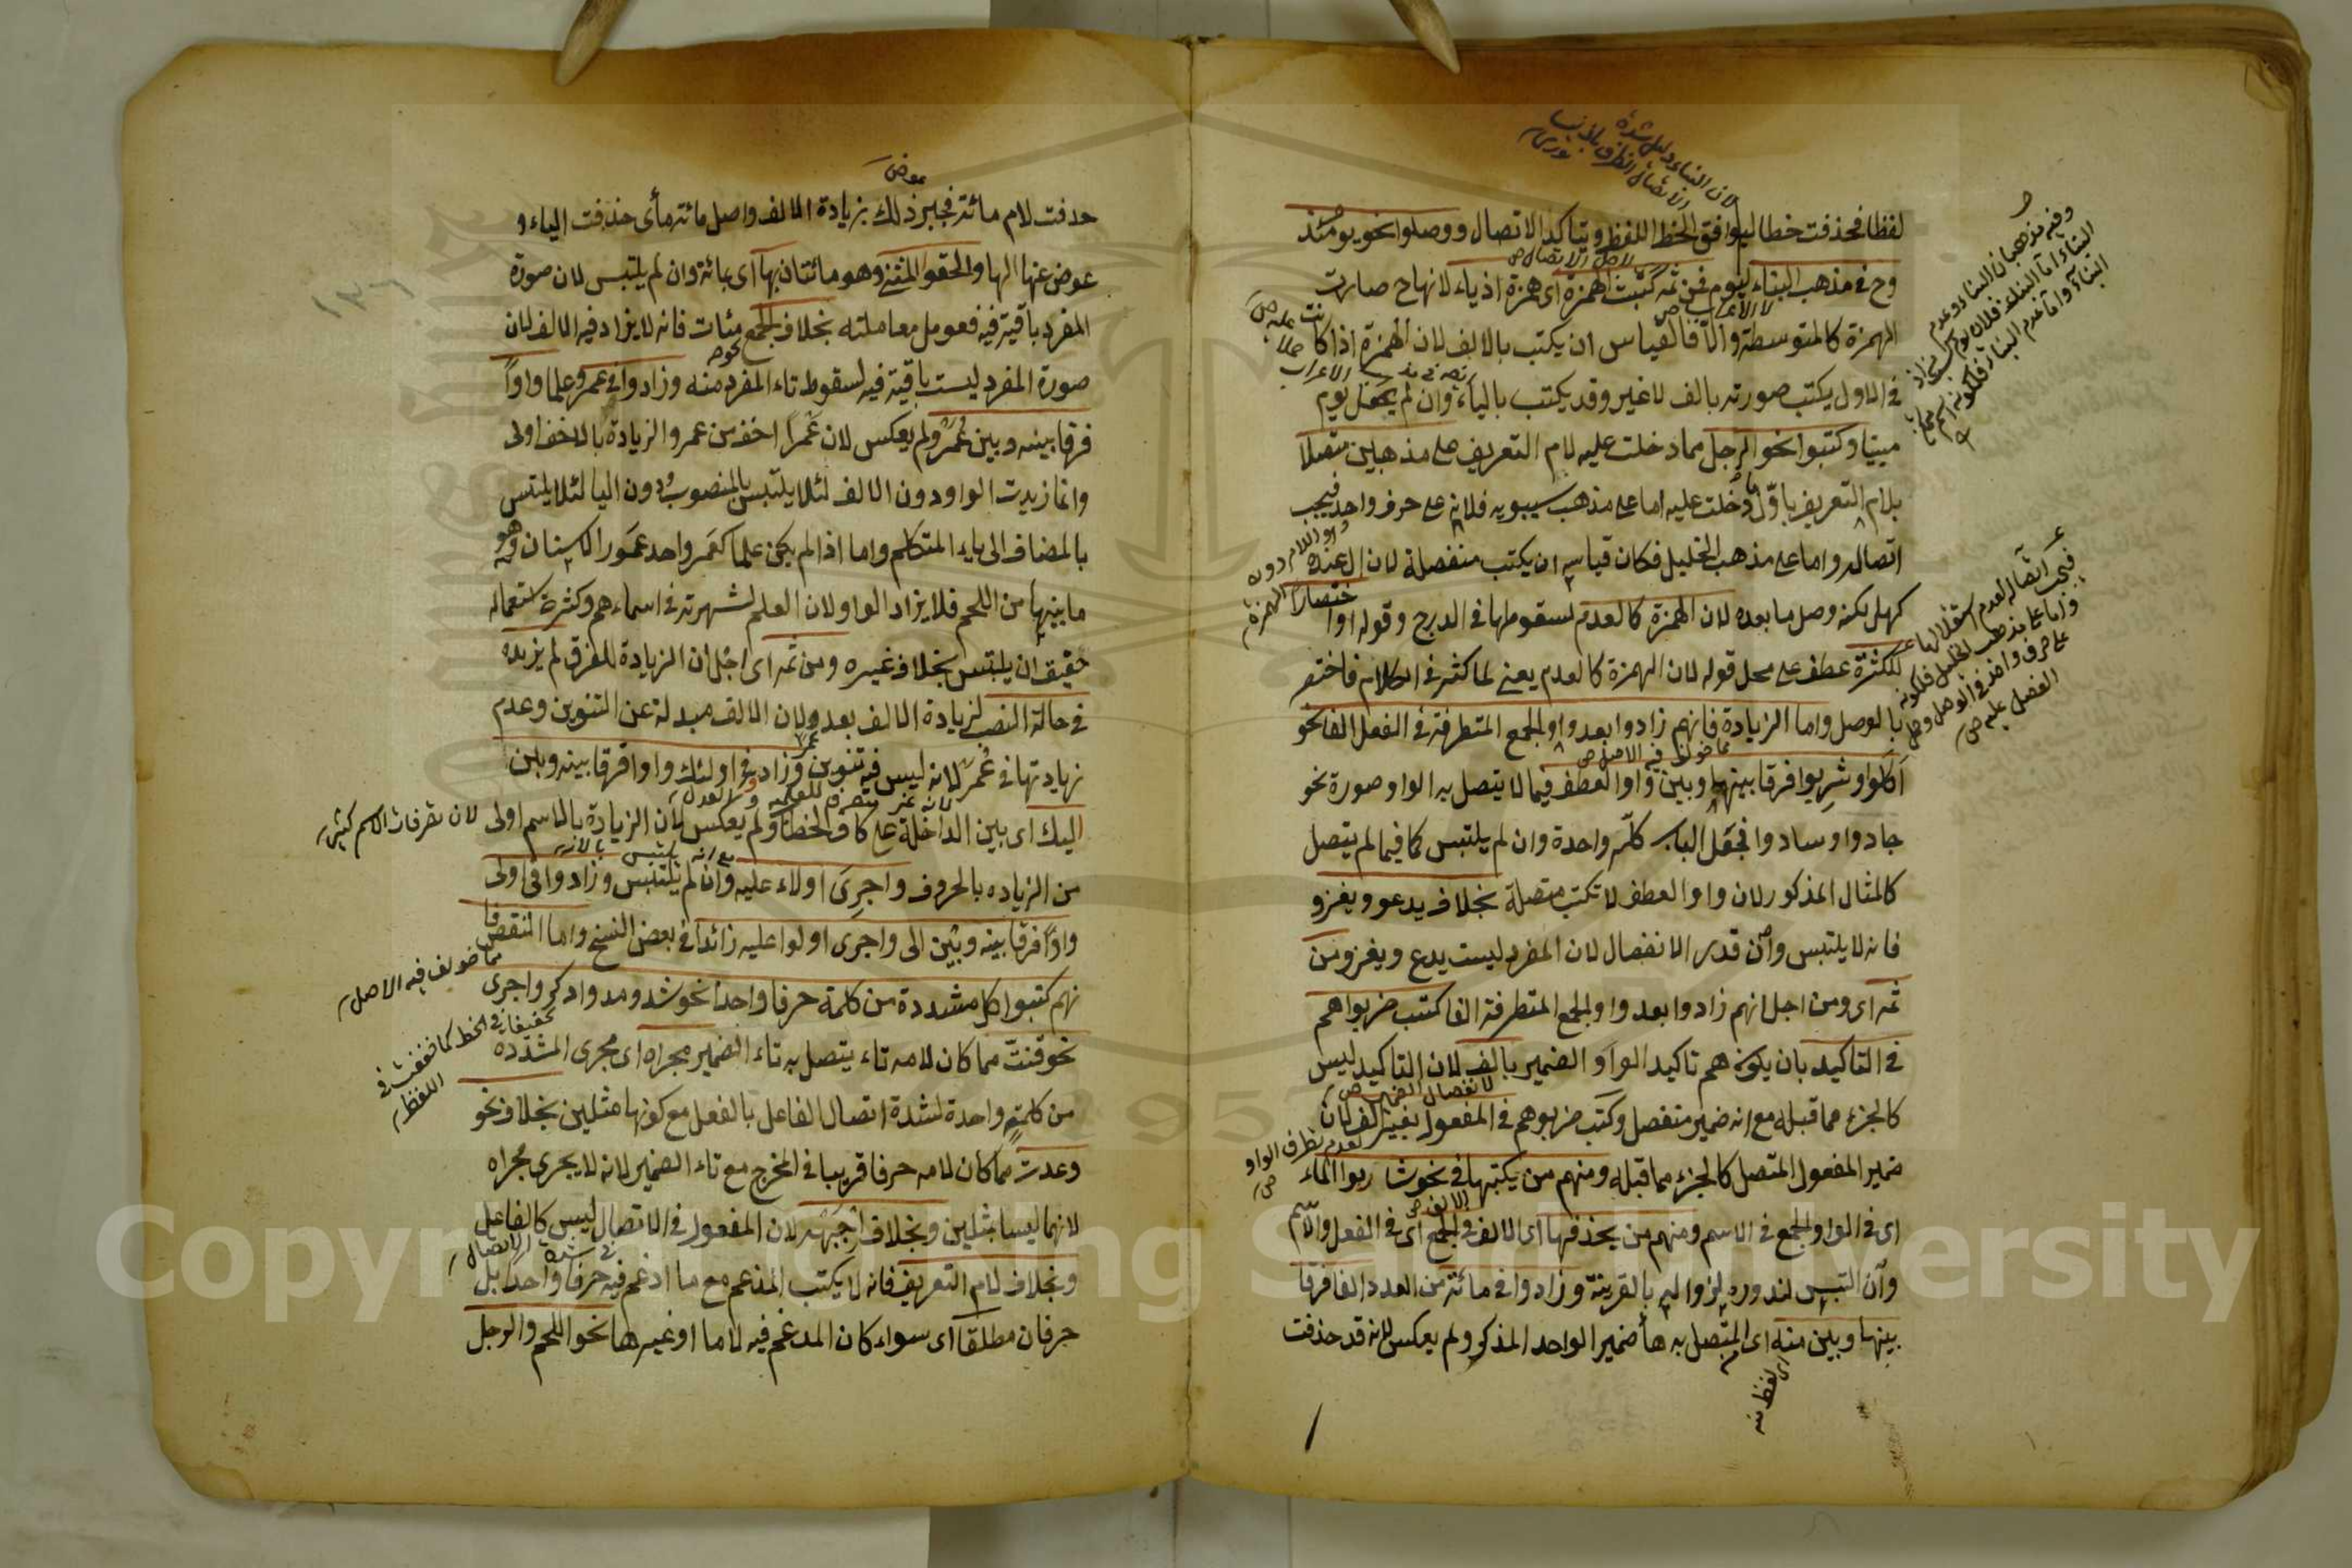 لفظا فحذفت خطا ليوافق الخط اللفظ وبتاكيد الاتصال ووصلوا نحو يومئذ
وح في مذهب البناء ليوم فمن ثمه كتبت الهمزة اى همزة اذ ياء لانها ح صارت
الهمزة كالمتوسطة والا فالقياس ان يكتب بالالف لان الهمزة اذا كانت
في الاول يكتب صورته بالف لا غير وقد يكتب بالياء وان لم يجعل يوم
مبنيا وكتبوا نحو الرجل مما دخلت عليه لام التعريف على مذهبين متصلا
بلام التعريف باول ما دخلت عليه اما على مذهب سيبويه فلانه على حرف واحد فيجب
اتصاله واما على مذهب الخليل فكان قياسه ان يكتب منفصلة لان ال عنده
كهل لكنه وصل ما بعده لان الهمزة كالعدم لسقوطها في الدرج وقوله او اختصارا
للكثرة عطف على محل قوله لان الهمزة كالعدم يعنى لما كثر في الكلام فاختصر
بالوصل واما الزيادة فانهم زادوا بعد واو الجمع المتطرفة في الفعل الفا نحو
اكلوا وشربوا فرقا بينها وبين واو العطف فيما لا يتصل به الواو صورة نحو
جادوا وسادوا فجعل الباب كله واحدة وان لم يلتبس كما فيما لم يتصل
كالمثال المذكور لان واو العطف لا تكتب متصلة بخلاف يدعو ويغزو
فانه لا يلتبس وان قدر الانفصال لان المفرد ليست يدع ويغز ومن
ثمه اى ومن اجل انهم زادوا بعد واو الجمع المتطرفة الفا كتب ضربوا هم
في التاكيد بان يكون هم تاكيد الواو الضمير بالف لان التاكيد ليس
كالجزء مما قبله مع انه ضمير منفصل وكتب ضربوهم في المفعول بغير الف لان
ضمير المفعول المتصل كالجزء مما قبله ومنهم من يكتبها في نحو شاربوا الماء
اى في الواو الجمع في الاسم ومنهم من يحذفها اى الالف في الجمع اى في الفعل والاسم
وان التبس لندوره لزواله بالقرينة وزادوا في مائة من العدد الفا فرقا
بينها وبين منه اى المتصل به هاء ضمير الواحد المذكر ولم يعكس لانه قد حذفت
حذفت لام مائة فجبر ذلك بزيادة الالف واصل مائة مأى حذفت الياء و
عوض عنها الها والحقوا المثنى وهو مائتان بها اى بمائة وان لم يلتبس لان صورة
المفرد باقية فيه فعومل معاملته بخلاف الجمع نحو مئات فانه لا يزاد فيه الالف لان
صورة المفرد ليست باقية فيه لسقوط تاء المفرد منه وزادوا في عمرو علما واوا
فرقا بينه وبين عمر ولم يعكس لان عمرا اخف من عمر والزيادة بالاخف اولى
وانما زيدت الواو دون الالف لئلا يلتبس بالمنصوب ودون اليا لئلا يلتبس
بالمضاف الى ياء المتكلم واما اذا لم يكن علما كعمر واحد عمور الاسنان وهو
ما بينها من اللحم فلا يزاد الواو لان العلم لشهرته في اسماءهم وكثرة استعماله
حقيق ان يلتبس بخلاف غيره ومن ثمه اى اجل ان الزيادة للفرق لم يزيده
في حالة النصب لزيادة الالف بعد ولان الالف مبدلة عن التنوين وعدم
زيادتها في عمر لانه ليس فيه تنوين وزادوا في اولئك واوا فرقا بينه وبين
اليك اى بين الى الداخلة على كاف الخطاب ولم يعكس لان الزيادة بالاسم اولى
لان تصرفات الاسم كثيره
من الزياده بالحروف واجرى اولاء عليه وان لم يلتبس وزادوا في اولى
واوا فرقا بينه وبين الى واجرى اولوا عليه زائدا في بعض النسخ واما النقص فا
نهم كتبوا كل مشددة من كلمة حرفا واحدا نحو شد ومد وادكر واجرى
نحو قنت مما كان لامه تاء يتصل به تاء الضمير مجراه اى مجرى المشدده
من كلمة واحدة لشدة اتصال الفاعل بالفعل مع كونها مثلين بخلاف نحو
وعدت مما كان لامه حرفا قريبا في المخرج مع تاء الضمير لانه لا يجرى مجراه
لانهما ليسا مثلين وبخلاف اجبهه لان المفعول في الاتصال ليس كالفاعل
وبخلاف لام التعريف فانه لا يكتب المدغم مع ما ادغم فيه حرفا واحدا بل
حرفان مطلقا اى سواء كان المدغم فيه لاما او غيرها نحو اللحم والرجل
Copyright © King Saud University